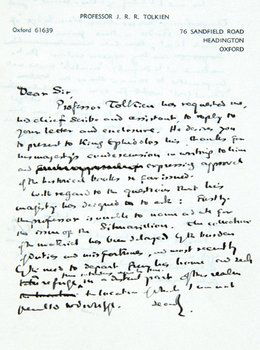 PROFESSOR J. R. R. TOLKIEN
Oxford 61639
76 SANDFIELD ROAD
HEADINGTON
OXFORD
Dear Sir,
Professor Tolkien has requested me,
his chief scribe and assistant, to reply to
your letter and enclosure. He desires you
to present to King Ephidolos his thanks for
his majesty's condescension in writing to him
and expressing approval
of the historical books so far issued.
With regard to the questions that his
majesty has deigned to ask: Firstly,
the professor is unable to name a date for
the issue of the Silmarillion. The
of the material has been delayed by the burden
of duties and misfortunes, and most recently
to depart from his home and seek
refuge in a part of the realm
the location of which I am not